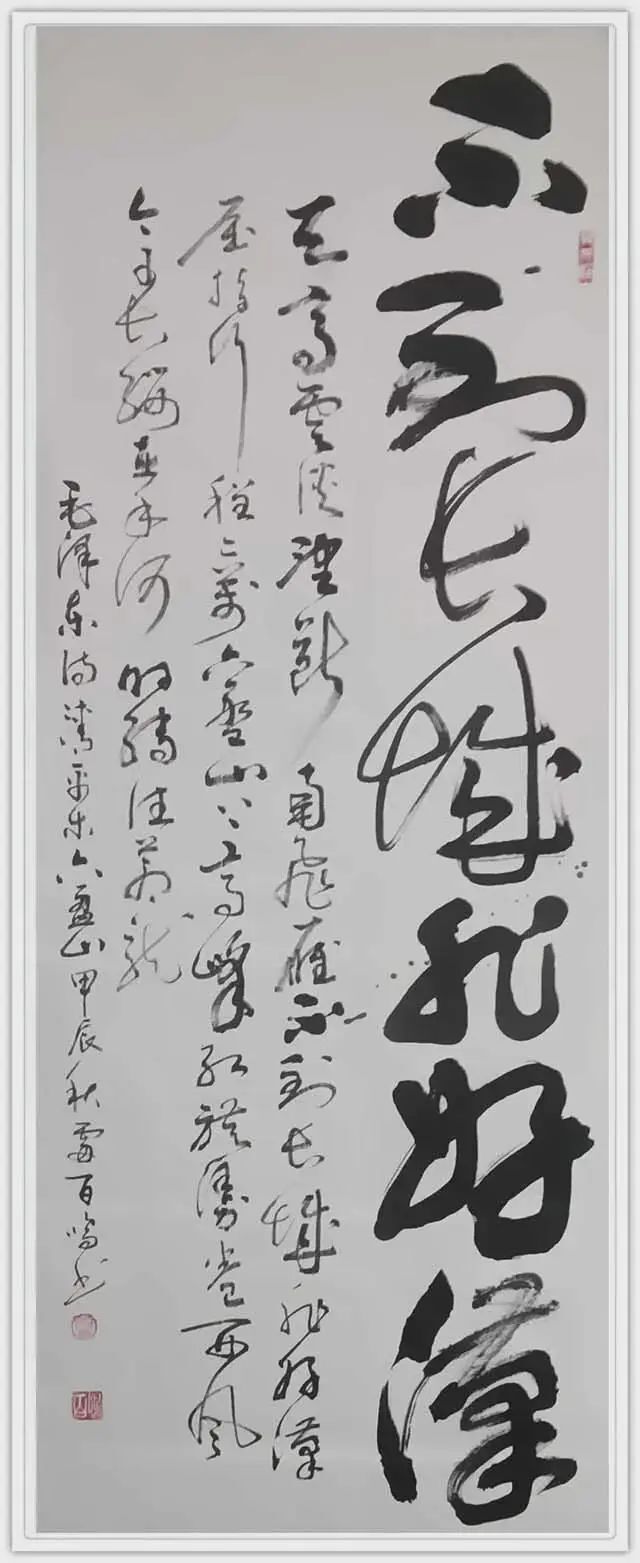 不到长城非好漢
天高雲淡望斷南飛雁不到长城非好漢
屈指行程二萬六盤山上高峰红旗漫卷西风
今日长纓在手何时缚住苍龙
毛泽东词清平乐六盘山甲辰秋雷百鸣书